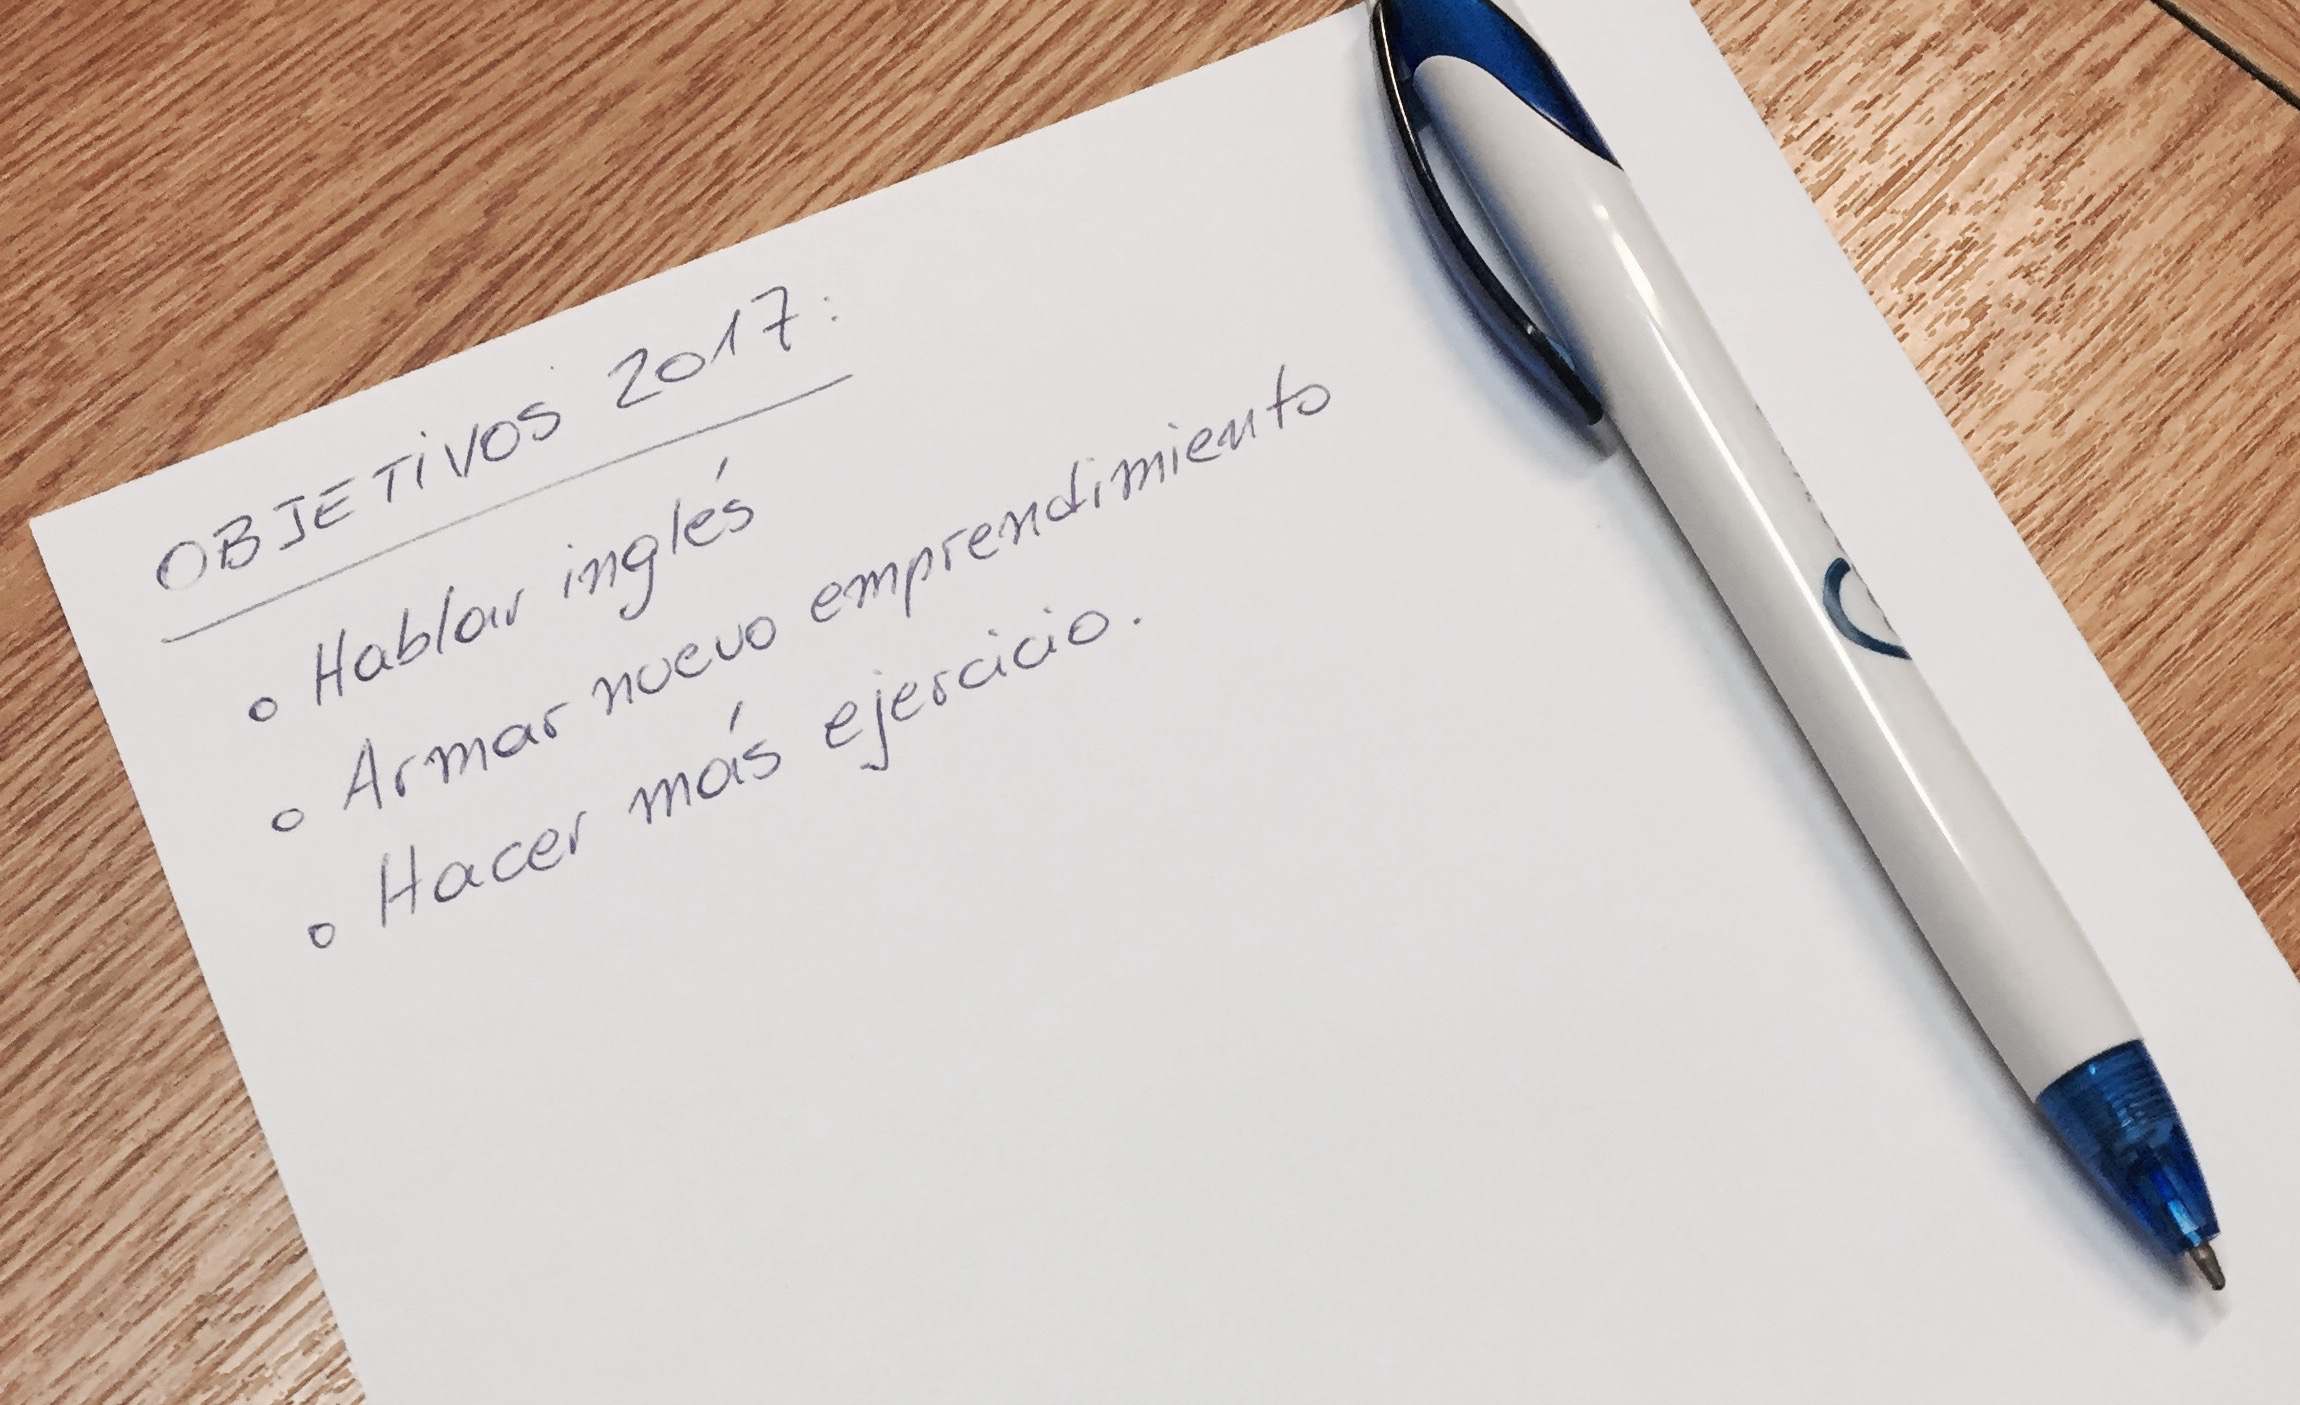 OBJETIVOS 2017:
○ Hablar inglés
○ Armar nuevo emprendimiento
○ Hacer más ejercicio.